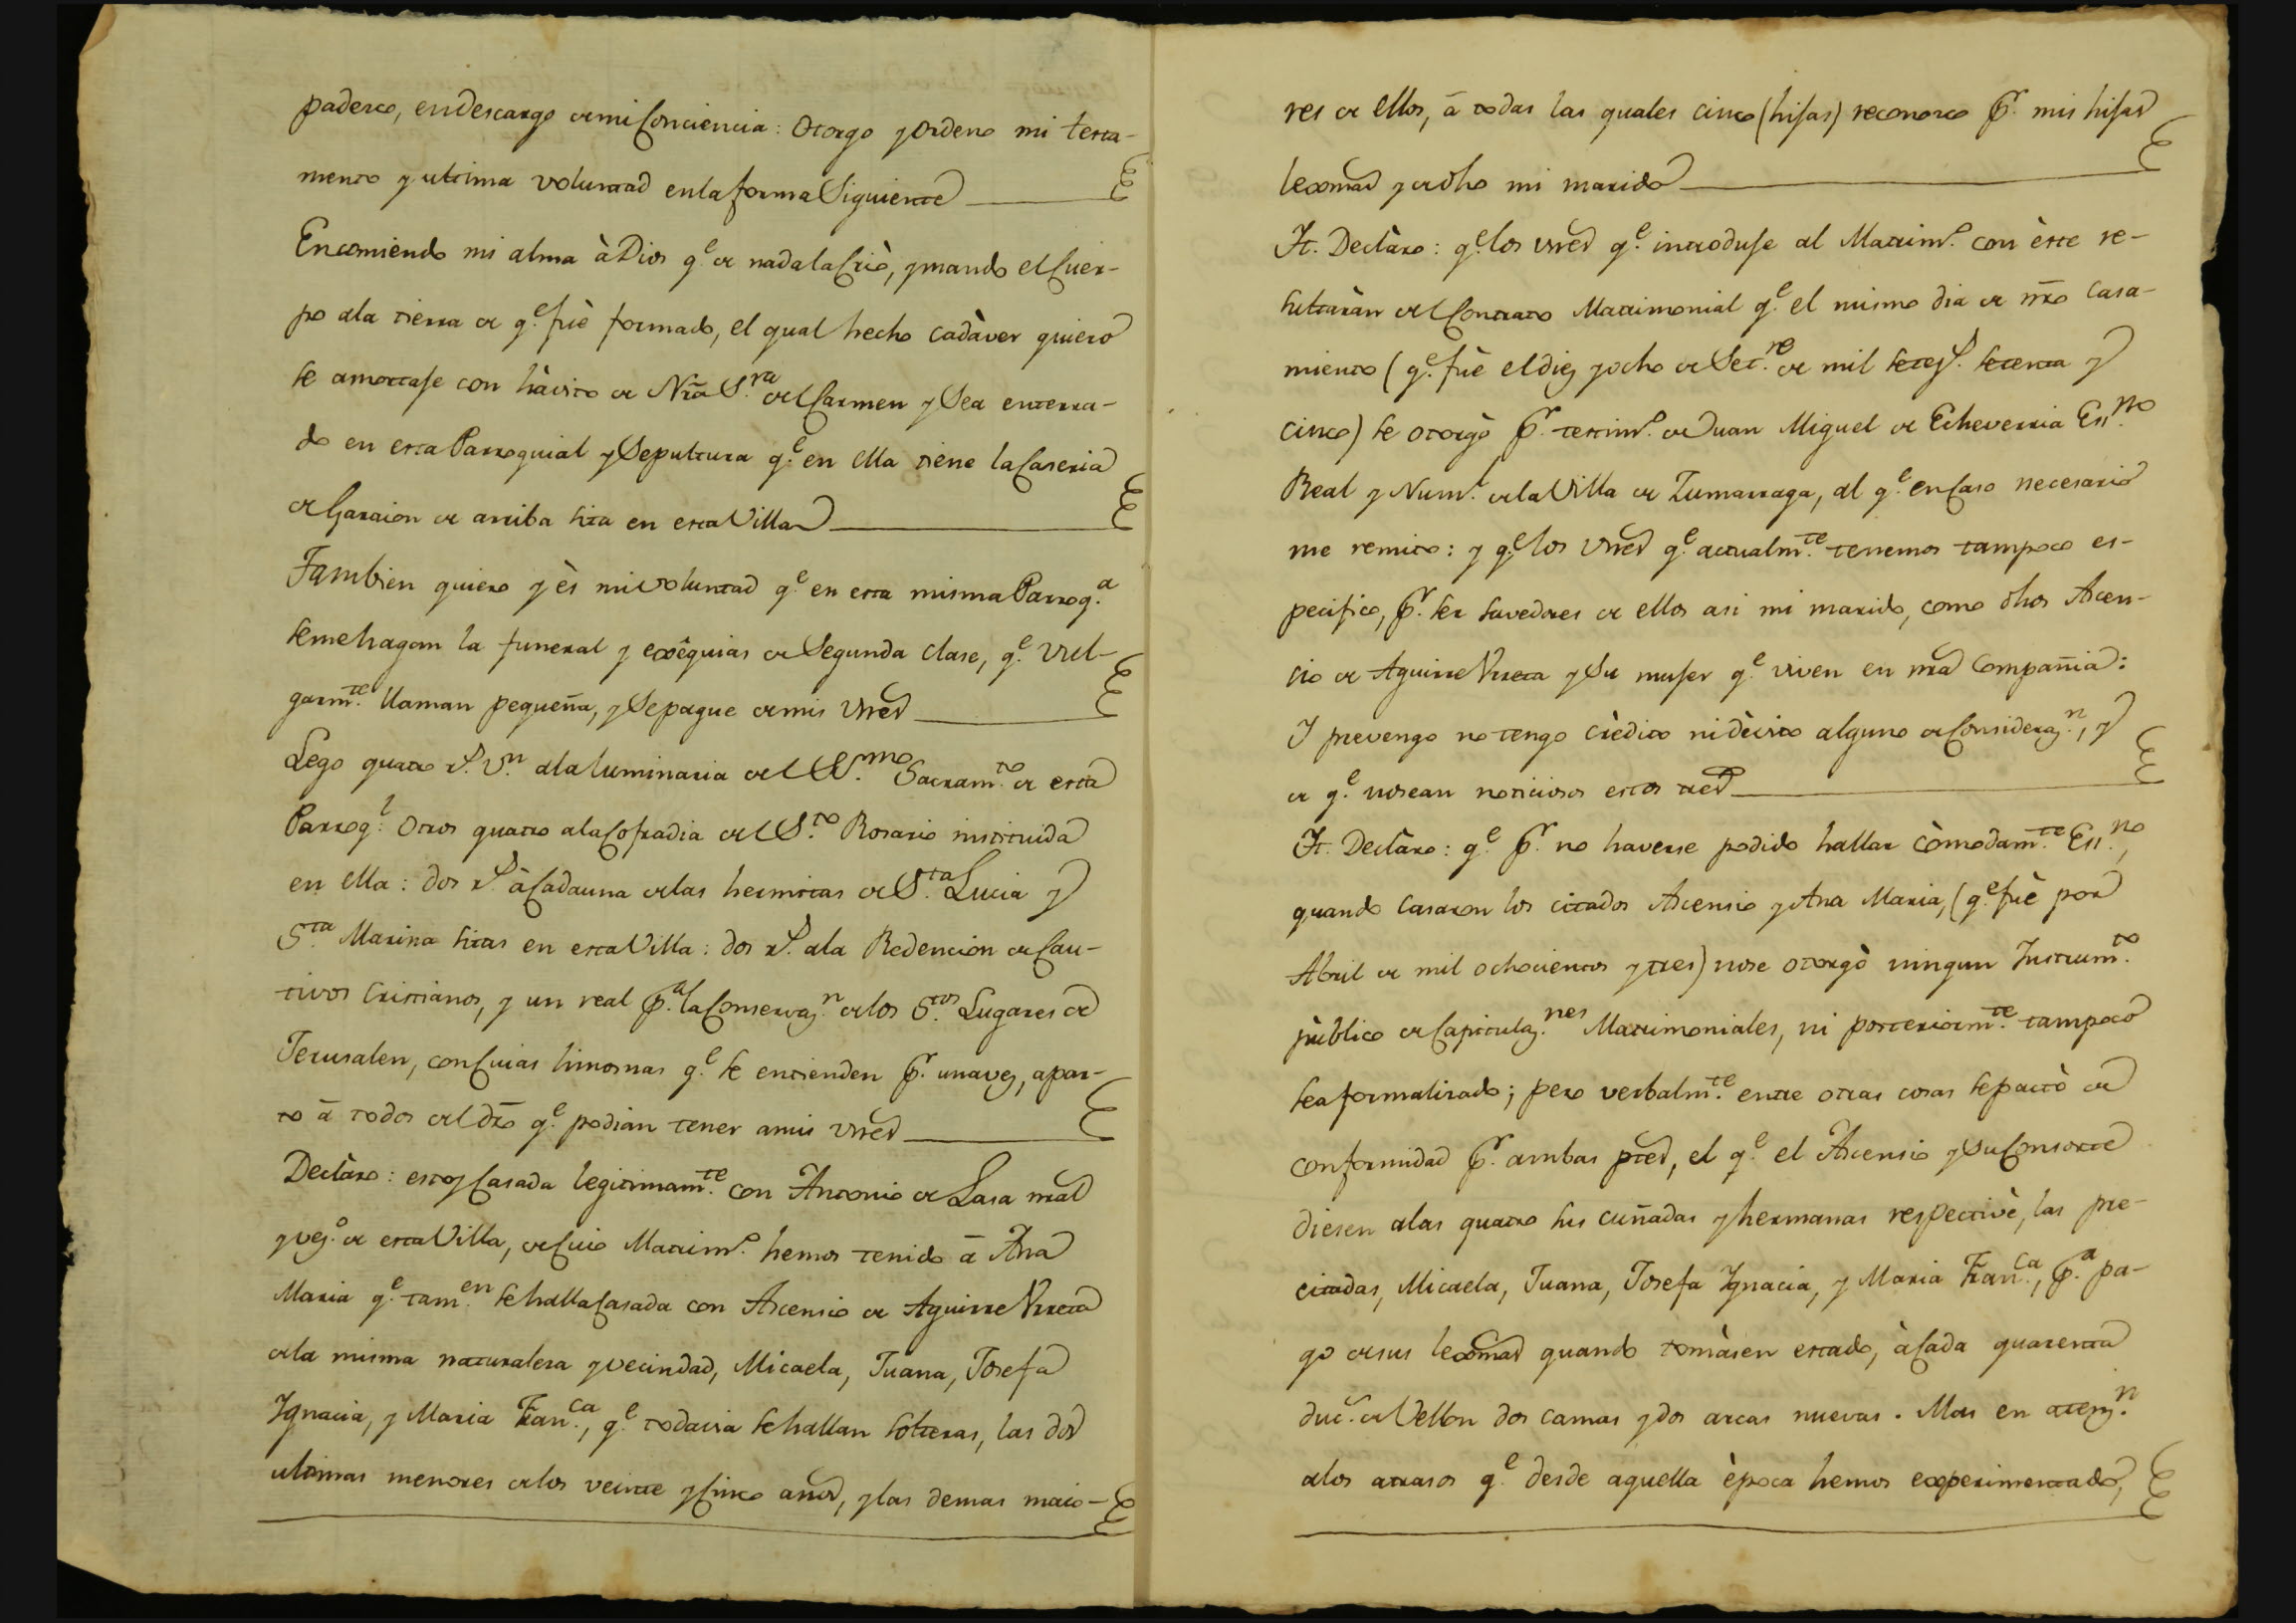 padesco, en descargo de mi Conciencia: Otorgo y Ordeno mi testa-
mento y ultima voluntad en la forma Siguiente
Encomiendo mi alma à Dios q.e de nada la Criò, y mando el Cuer-
po ala tierra de q.e fuè formado, el qual hecho cadàver quiero
se amortaje con hàvito de Nrã S.ra del Carmen y Sea enterra-
do en esta Parroquial y Sepultura q.e en ella tiene la Caseria
de Garaion de arriba sita en esta Villa
Tambien quiero y ès mi voluntad q.e en esta misma Parroq.a
se me hagan la funeral y exêquias de Segunda clase, q.e vul-
garm.te llaman pequeña, y Se pague de mis vnes
Lego quatro r.s v.n ala luminaria del SS.mo Sacram.to de esta
Parroq.l Otros quatro ala Cofradia del S.to Rosario instituida
en ella: dos r.s à Cada una de las hermitas de S.ta Lucia y
S.ta Marina sitas en esta Villa: dos r.s ala Redencion de Cau-
tivos Cristianos, y un real p.a la Conservaz.n de los S.tos Lugares de
Jerusalen, con Cuias limosnas q.e se entienden p.r una vez, apar-
to ã todos del dr̃o q.e podian tener a mis vnes
Declàro: estoy Casada legitimam.te con Antonio de Lasa nral
y vez.o de esta Villa, de Cuio Matrim.o hemos tenido ã Ana
Maria q.e tam.en se halla Casada con Ascensio de Aguirre Urreta
de la misma naturalesa y vecindad, Micaela, Juana, Josefa
Ignacia, y Maria Fran.ca, q.e todavia se hallan solteras, las dos
ultimas menores de los veinte y Cinco años, y las demas maio-
res de ellos, ã todas las quales cinco (hijas) reconosco p.r mis hijas
lexmas y de dho mi marido
It. Declàro: q.e los vnes q.e introduje al Matrim.o con èste re-
sultaràn del Contrato Matrimonial q.e el mismo dia de nr̃o Casa-
miento (q.e fuè el diez y ocho de Set.re de mil setez.s setenta y
cinco) se otorgò p.r testim.o de Juan Miguel de Echeverria Es.no
Real y Num.l de la Villa de Zumarraga, al q.e en Caso necesario
me remito: y q.e los vnes q.e actualm.te tenemos tampoco es-
pecifico, p.r ser savedores de ellos asi mi marido, como dhos Ascen-
sio de Aguirre Urreta y Su mujer q.e viven en nra Compañia:
Y prevengo no tengo crèdito ni dèvito alguno de Consideraz.n, y
de q.e no sean noticiosos estos tres
It. Declàro: q.e p.r no haverse podido hallar còmodam.te Es.no,
quando Casaron los citados Ascensio y Ana Maria, (q.e fuè por
Abril de mil ochocientos y tres) no se otorgò ningun Instrum.to
pùblico de Capitulaz.nes Matrimoniales, ni posteriorm.te tampoco
se a formalisado; pero verbalm.te entre otras cosas se pactò de
conformidad p.r ambas ptes, el q.e el Ascensio y Su Consorte
diesen alas quatro sus cuñadas y hermanas respectivè, las pre-
citadas, Micaela, Juana, Josefa Ignacia, y Maria Fran.ca, p.a pa-
go de sus lexmas quando tomàsen estado, à Cada quarenta
duc.s de Vellon dos camas y dos arcas nuevas. Mas en atenz.n
alos atrasos q.e desde aquella època hemos experimentado,